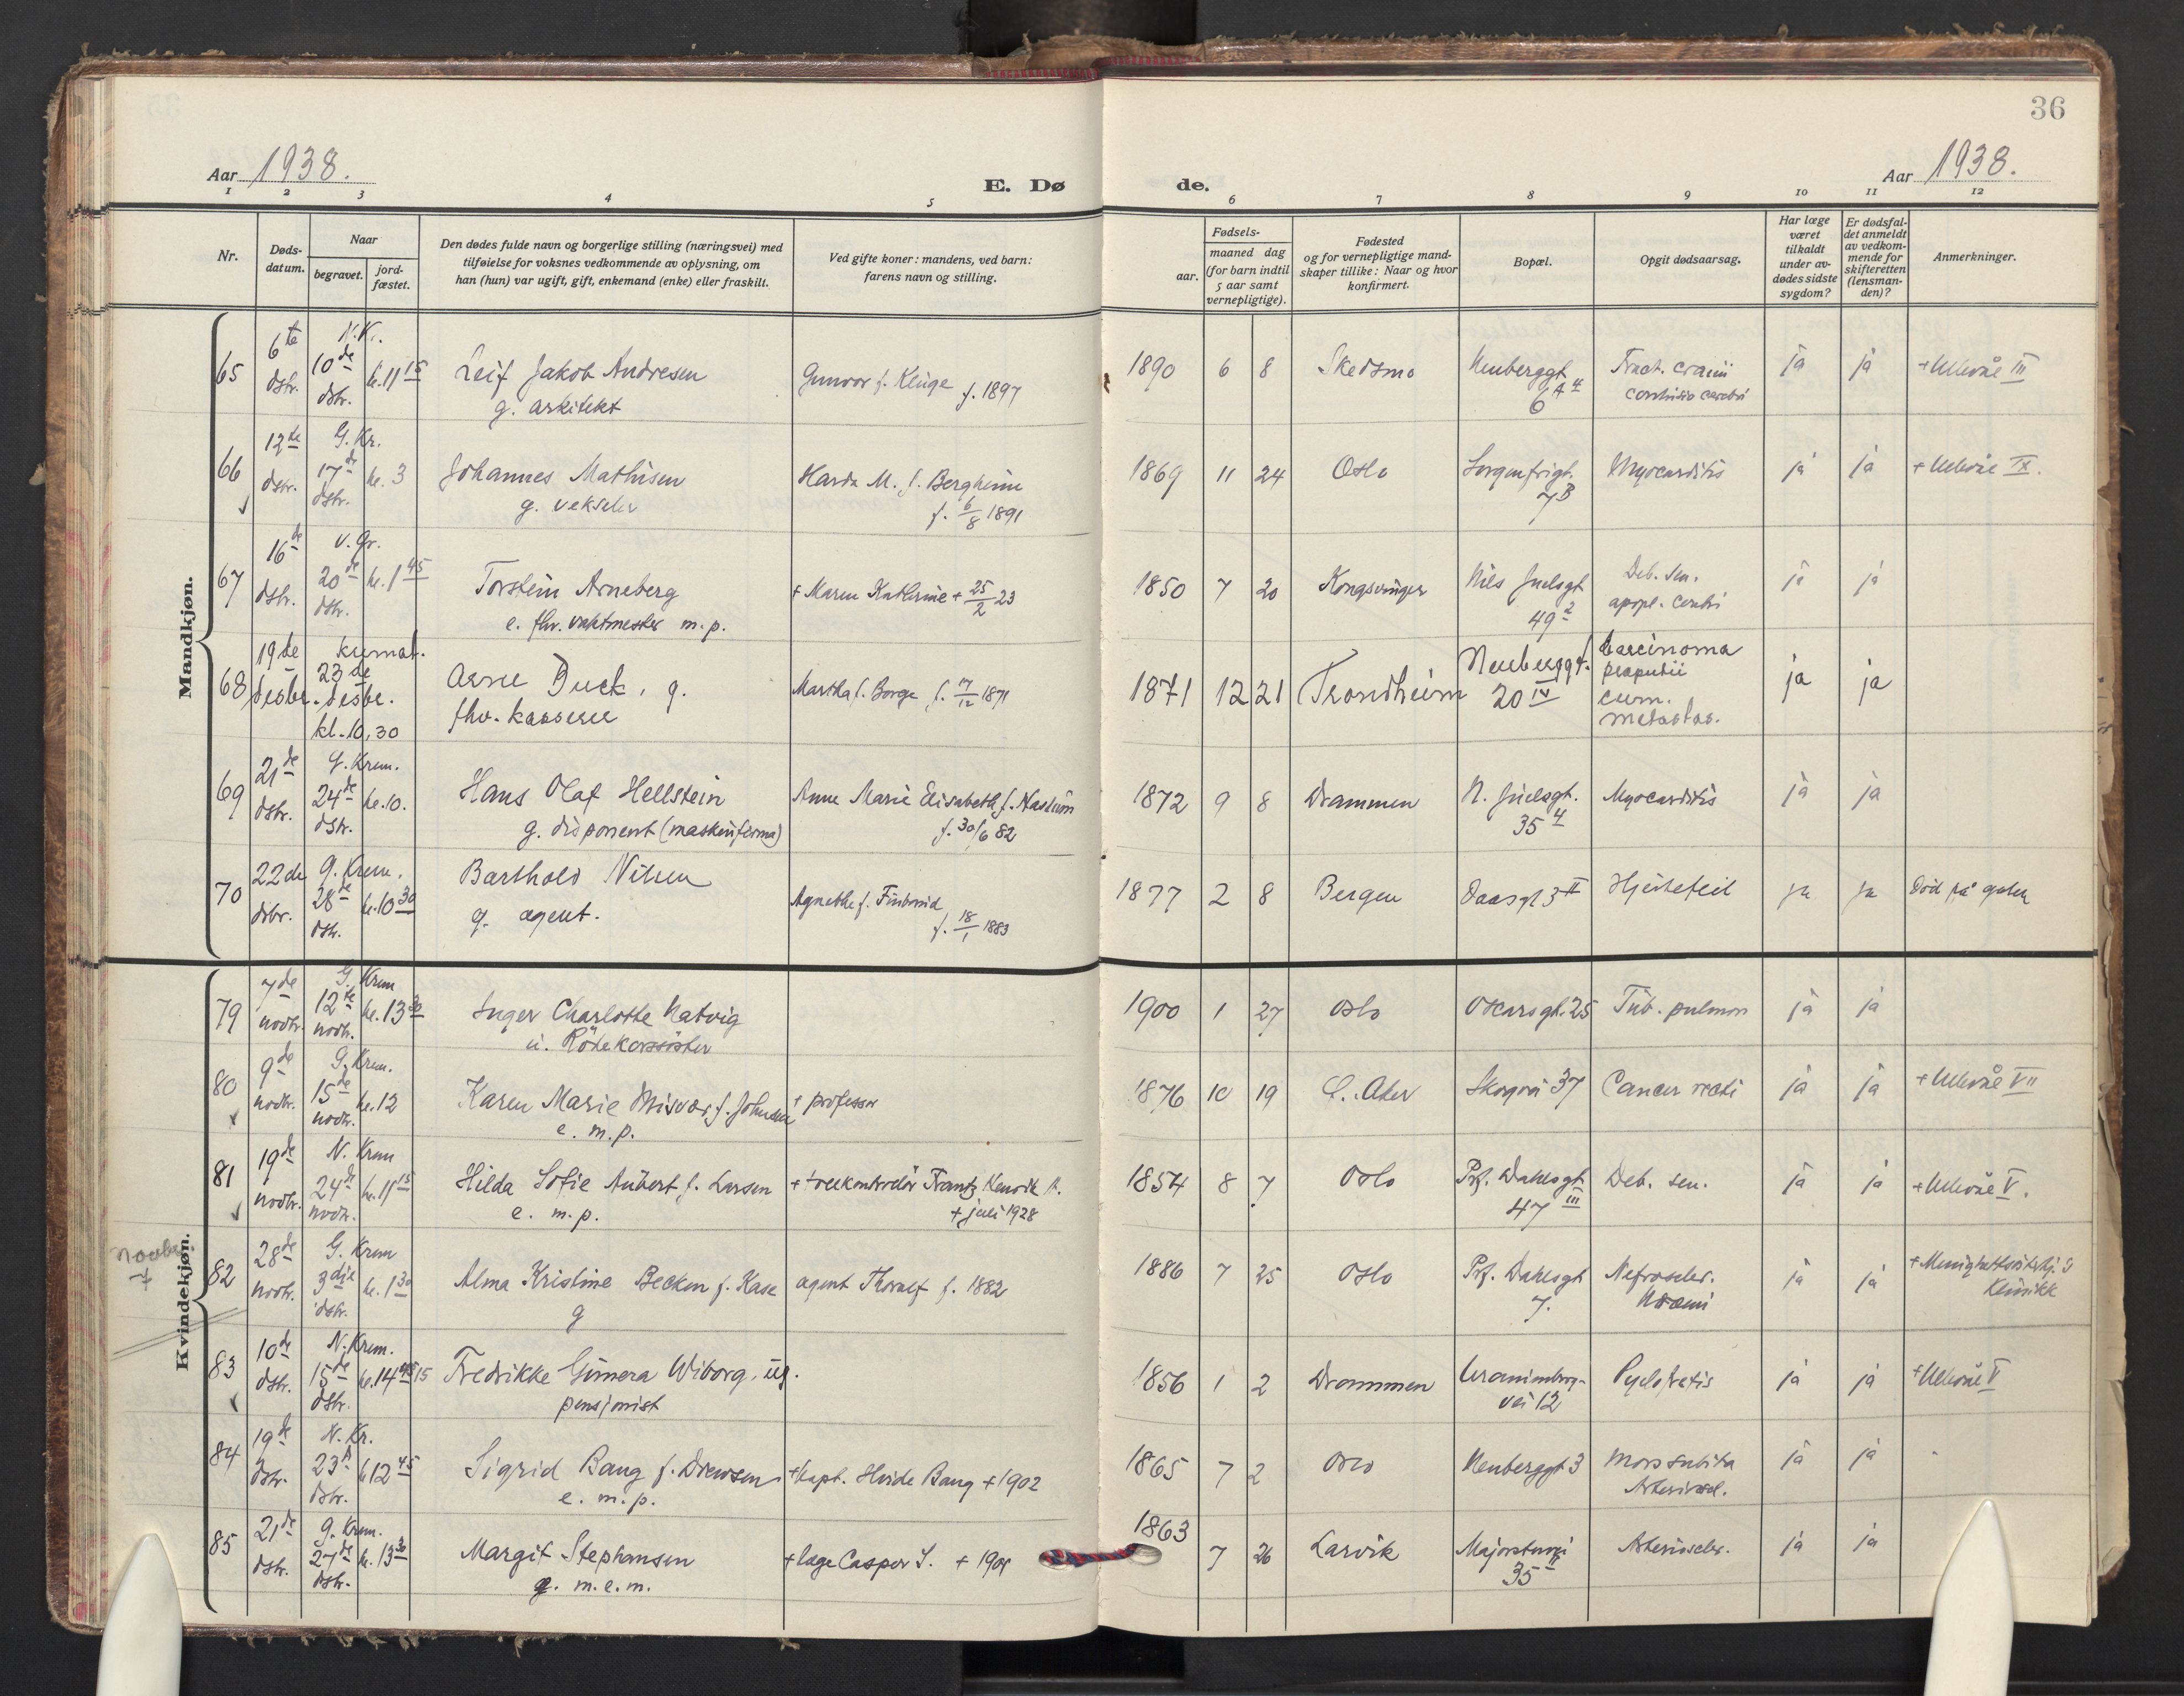 36
Aar 1938.
E. Dø de.
Aar 1938.
1 2 3 4 5 6 7 8 9 10 11 12
Nr.
Døds-
datum.
Naar
begravet.
jord-
fæstet.
Den dødes fulde navn og borgerlige stilling (næringsvei) med
tilføielse for voksnes vedkommende av oplysning, om
han (hun) var ugift, gift, enkemand (enke) eller fraskilt.
Ved gifte koner: mandens, ved barn:
farens navn og stilling.
Fødsels-
aar.
maaned dag
(for barn indtil
5 aar samt
vernepligtige).
Fødested
og for vernepligtige mand-
skaper tillike: Naar og hvor
konfirmert.
Bopæl.
Opgit dødsaarsag.
Har læge
været
tilkaldt
under av-
dødes sidste
sygdom?
Er dødsfal-
det anmeldt
av vedkom-
mende for
skifteretten
(lensman-
den)?
Anmerkninger.
Mandkjøn.
65 6te dsbr. N.K. 10de dsbr. kl. 11 15 Leif Jakob Andresen Gunvor f. Kluge f. 1897 1890 6 8 Skedsmo Neuberggt. 6 A 4 Fract. cranii ja ja + Ullevål III
g. arkitekt
66 12te dsbr. G. Kr. 17de dsbr. kl. 3 Johannes Mathisen M. f. Bergheim 1869 11 24 Oslo Sorgenfrigt. 7B Myocarditis ja ja + Ullevål IX.
g. veksler f. 6/8 1891
67 16de dsbr. V. Gr. 20de dsbr. kl. 1 45 Torstein Arneberg + Maren Kathrine + 25/2 23 1850 7 20 Kongsvinger Nils Juelsgt 49 2 Deb. sen. ja ja
e. fhv. vaktmester m.p. apopl. cerebri
68 19de desbr. kremat. 23de desbr. kl. 10,30 Arne Buck, g. Martha f. Borge f. 17/12 1871 1871 12 21 Trondheim Neuberggt. 20 IV Carcinoma
fhv. kasserer praeputii
cum.
metastas. ja ja
69 21de dsbr. G. Krem. 24de dsbr. kl. 10. Hans Olaf Hellstein Anne Marie Elisabeth f. 1872 9 8 Drammen N. Juelsgt. 35 4 Myocarditis ja ja
g. disponent (maskinfirma) f. 30/6 82
70 22de dsbr. G. Krem. 28de dsbr. kl. 10 30 Barthold Nilsen Agnethe f. 1877 2 8 Bergen Daasgt 3 II Hjertefeil ja ja Död på gaten
g. agent. f. 18/1 1883
Kvindekjøn.
79 7de novbr. G. Krem 12te novbr. kl. 13 30 Inger Charlotte Natvig 1900 1 27 Oslo Oscarsgt. 25 Tub. pulmon ja ja
u. Rödekorssöster
80 9de novbr. G. Krem. 15de novbr. kl. 12 Karen Marie f. Johnsen + professor 1876 10 19 Ö. Aker Skogvei 37 Cancer recti ja ja + Ullevål VII
e. m.p.
81 19de novbr. N. Krem 24de novbr. kl. 11 15 Hilda Sofie Aubert f. Larsen + tollkontrolör Frantz Henrik A. 1854 8 7 Oslo Prf. Dahlsgt 47 III Deb. sen. ja ja + Ullevål V.
e. m.p. + juli 1928
novbr. 7
82 28de novbr. G. Krem 3dje dsbr. kl. 1 30 Alma Kristine Becken f. Kase agent Thoralf f. 1882 1886 7 25 Oslo Prf. Dahlsgt 7. Nefroscler. ja ja + Menighetssösterhj.s
g Uræmi Klinikk
83 10de dsbr. N. Krem. 15de dsbr. kl. 14 15 Fredrikke Gunera Wiborg. ug. 1856 1 2 Drammen Uranienborg- ja ja + Ullevål V
pensjonist vei 12
84 19de dsbr. N. Kr. 23de dsbr. kl 12 45 Sigrid Bang f. Drewsen + kapt. Hvide Bang + 1902 1865 7 2 Oslo Neuberggt 3 Mors subita ja ja
e. m.p. Arterioscl.
85 21de dsbr. G. Krem. 27de dsbr. kl. 13 30 Margit Stephansen + læge Casper S. + 1909 1863 7 26 Larvik Majorstuvei 35 II Arterioscler. ja ja
e. m.e.m.